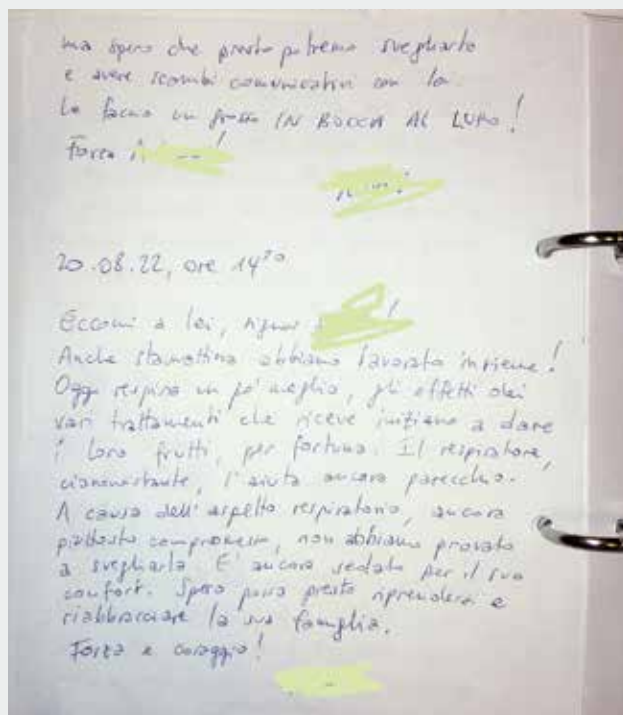 ma spero che presto potremo svegliarlo
e avere scambi comunicativi con lei.
Le faccio un grosso IN BOCCA AL LUPO!
Forza !
20.08.22, ore 14²⁰
Eccomi a lei, signor !
Anche stamattina abbiamo lavorato insieme!
Oggi respira un po' meglio, gli effetti dei
vari trattamenti che riceve iniziano a dare
i loro frutti, per fortuna. Il respiratore,
ciononostante, l'aiuta ancora parecchio.
A causa dell'aspetto respiratorio, ancora
piuttosto compromesso, non abbiamo provato
a svegliarla. E' ancora sedato per il suo
confort. Spero possa presto riprendersi e
riabbracciare la sua famiglia.
Forza e coraggio!